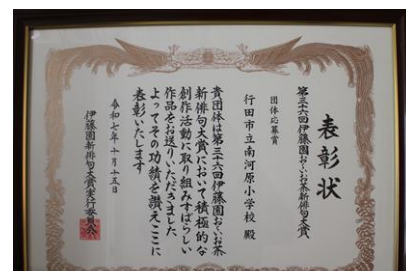 表彰状
第三十六回伊藤園お〜いお茶新俳句大賞
団体応募賞
行田市立南河原小学校 殿
貴団体は第三十六回伊藤園お〜いお茶
新俳句大賞において積極的な
創作活動に取り組みすばらしい
作品をお送りいただきました
よってその功績を讃えここに
表彰いたします
令和七年十月十五日
伊藤園新俳句大賞実行委員会